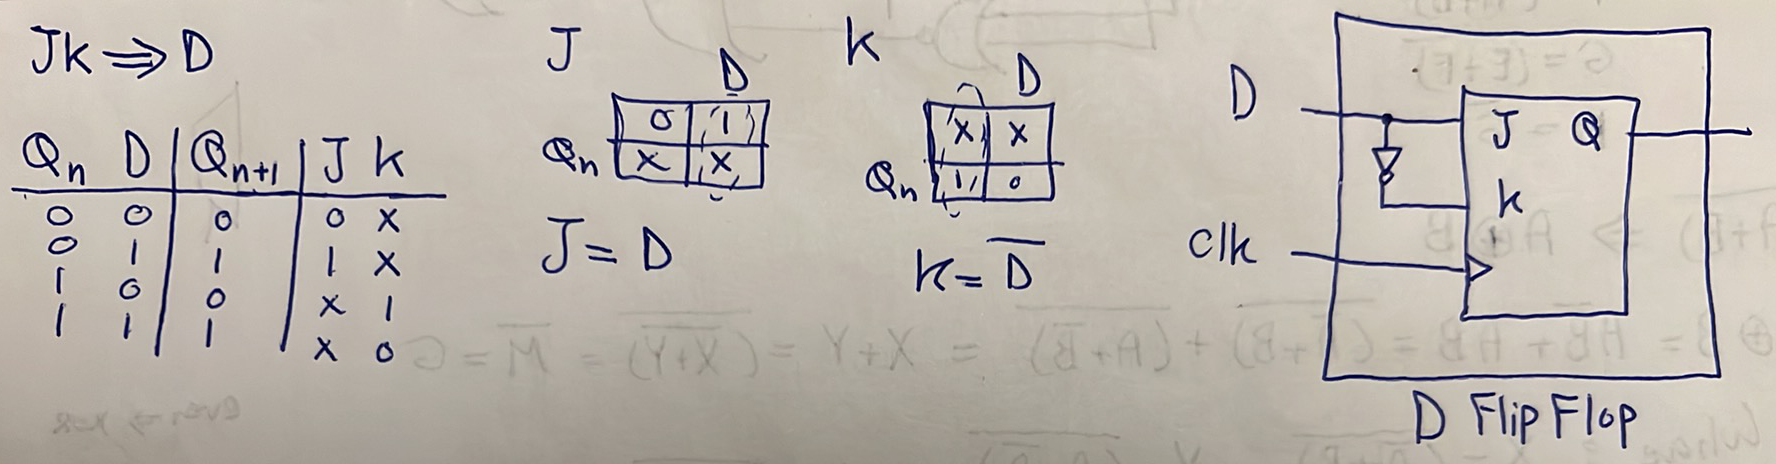 JK ⇒ D
Qn D Qn+1 J K
0 0 0 0 X
0 1 1 1 X
1 0 0 X 1
1 1 1 X 0
J
D
0 1
Qn X X
J = D
K
D
X X
Qn 1 0
K = D̅
D
J Q
K
Clk
D Flip Flop